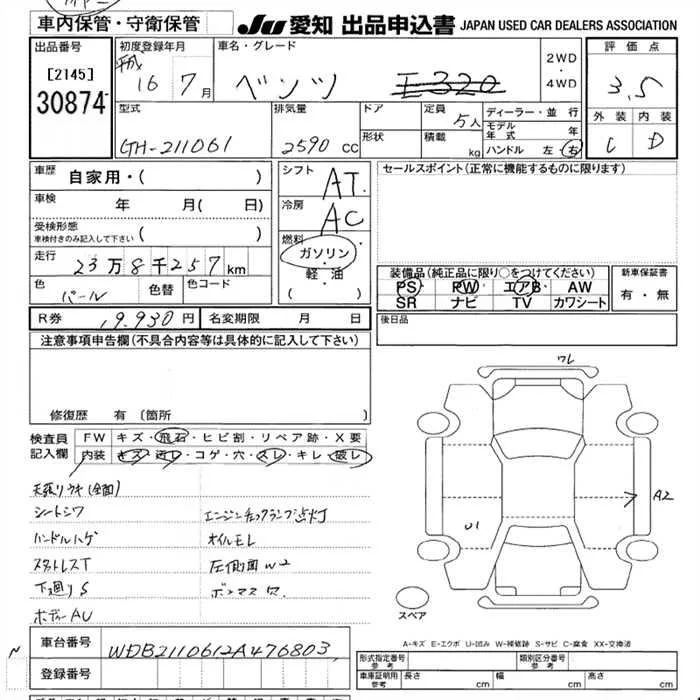 車内保管・守衛保管 JU 愛知 出品申込書 JAPAN USED CAR DEALERS ASSOCIATION
出品番号 初度登録年月 車名・グレード 2WD ・ 4WD 評価点
[2145] 平成
30874 16 7月 ベンツ E320 3.5
型式 排気量 ドア 定員 5人 ディーラー・並行 外装 内装
GH-211061 2590 cc 形状 積載 kg モデル年式 年 C D
ハンドル 左・右
車歴 自家用・( ) シフト AT セールスポイント(正常に機能するものに限ります)
車検 年 月(日) 冷房 AC
受検形態 車検付きのみ記入して下さい ( )
燃料 ガソリン
走行 23万8千257km 軽・油 装備品(純正品に限り○をつけてください) 新車保証書
色 パール 色替 色コード ( ) PS PW エアB AW 有・無
SR ナビ TV カワシート
R券 19,930円 名変期限 月 日 後日品
注意事項申告欄(不具合内容等は具体的に記入して下さい) ワレ
修復歴 有 (箇所
検査員 FW キズ・飛石・ヒビ割・リペア跡・X要
記入欄 内装 キズ・汚レ・コゲ・穴・スレ・キレ・破レ
天張リウキ(全面)
シートシワ エンジンチェックランプ点灯 A2
ハンドルハゲ オイルモレ U1
左側面W2
下廻りS
ボディーAU スペア
A-キズ E-エクボ U-凹み W-補修跡 S-サビ C-腐食 XX-交換済
車台番号 WDB2110612A476803
形式指定番号 参考 類別区分番号 参考
登録番号 車庫証明用 参考 長さ cm 幅 cm 高さ cm